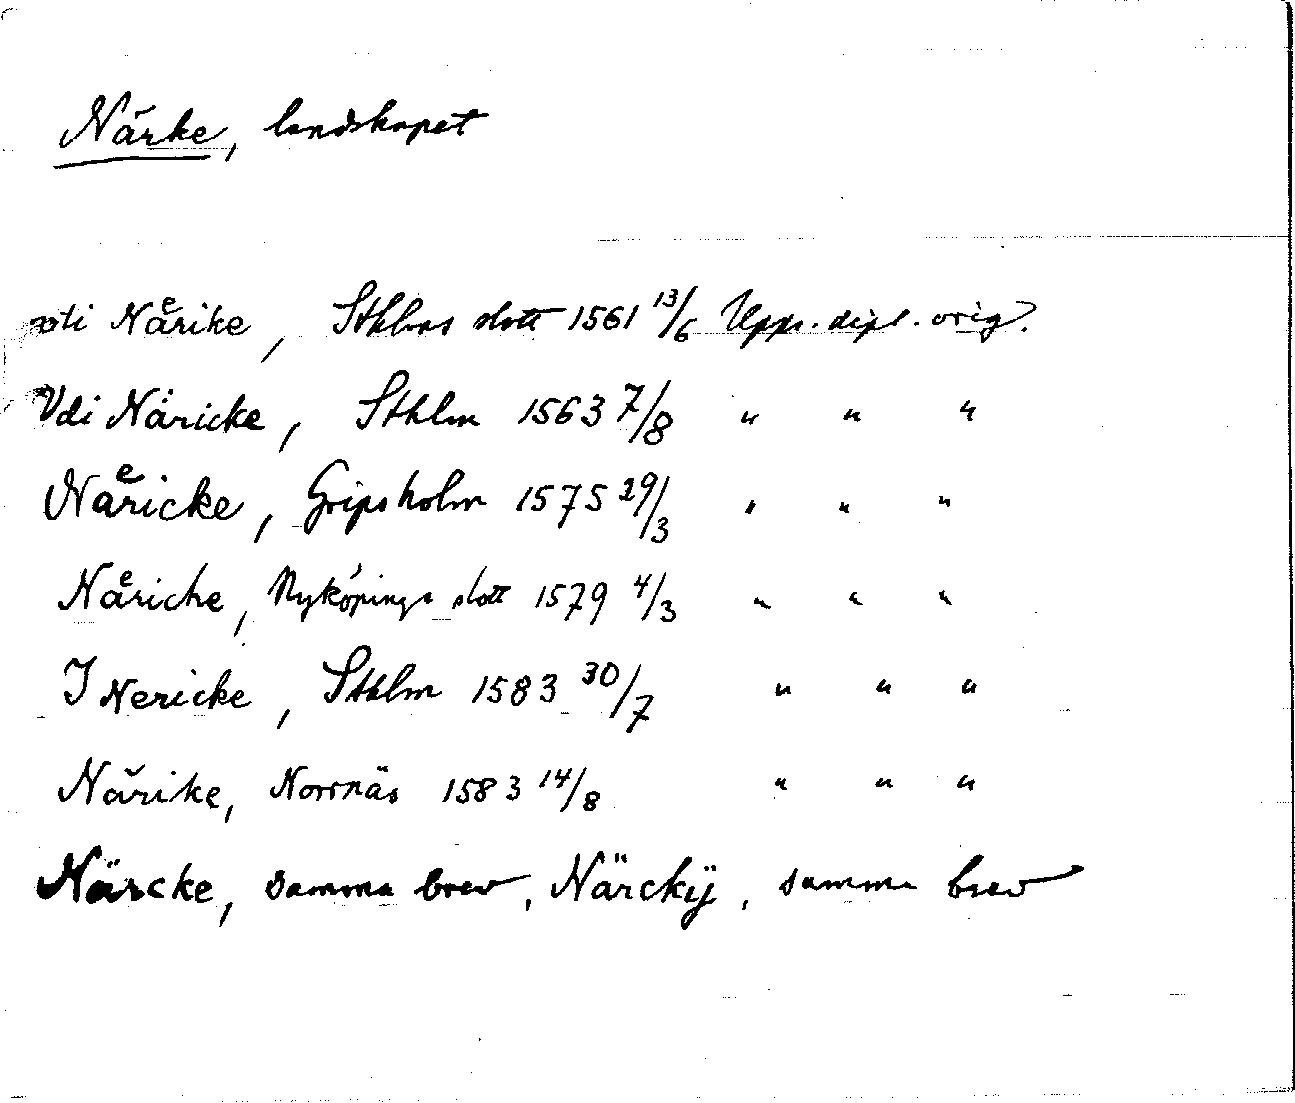 Närke, landskapet
uti Nåͤrike, Sthlms slott 1561 13/6 Upps. dipl. orig.
Vdi Näricke, Sthlm 1563 7/8 " " "
Naͤricke, Gripsholm 1575 29/3 " " "
Naͤriche, Nyköpings slott 1579 4/3 " " "
I Nericke, Sthlm 1583 30/7 " " "
Närike, Norrnäs 1583 14/8 " " "
Närcke, samma brev, Närckÿ, samma brev